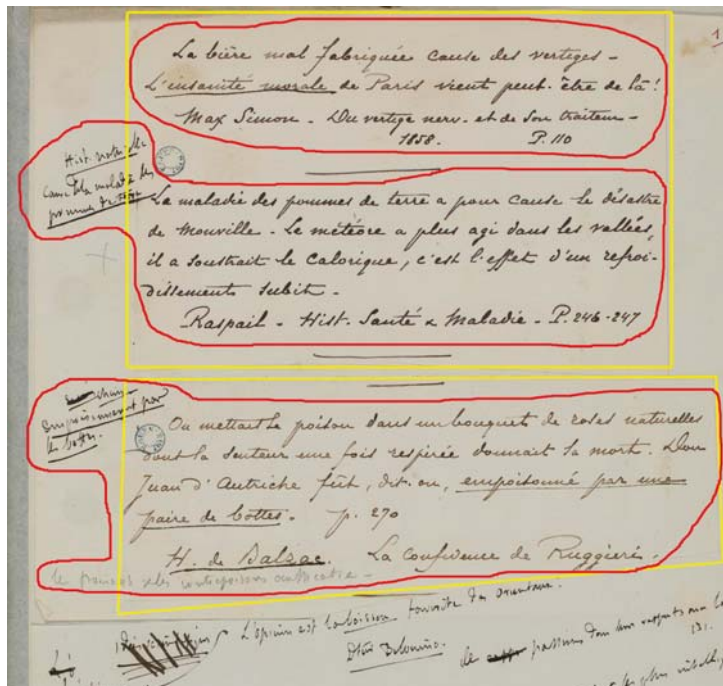 1
La bière mal fabriquée cause des vertiges –
L'insanité morale de Paris vient peut-être de là !
Max Simon – Du vertige nerv. et de son traitem –
1858. P. 110
Hist. naturelle
cause de la maladie des
pommes de terre
La maladie des pommes de terre a pour cause le désastre
de Monville – Le météore a plus agi dans les vallées,
il a soustrait le calorique, c'est l'effet d'un refroi-
dissements subit –
Raspail – Hist. Santé & Maladie – P. 246-247
empoisonnement par
les bottes.
On mettait le poison dans un bouquet de roses naturelles
dont la senteur une fois respirée donnait la mort. Don
Juan d'Autriche fût, dit-on, empoisonné par une
paire de bottes. p. 270
H. de Balzac. La confidence de Ruggieri.
L'opium est la boisson favorite des orientaux.
passions dans leurs rapports avec
131.